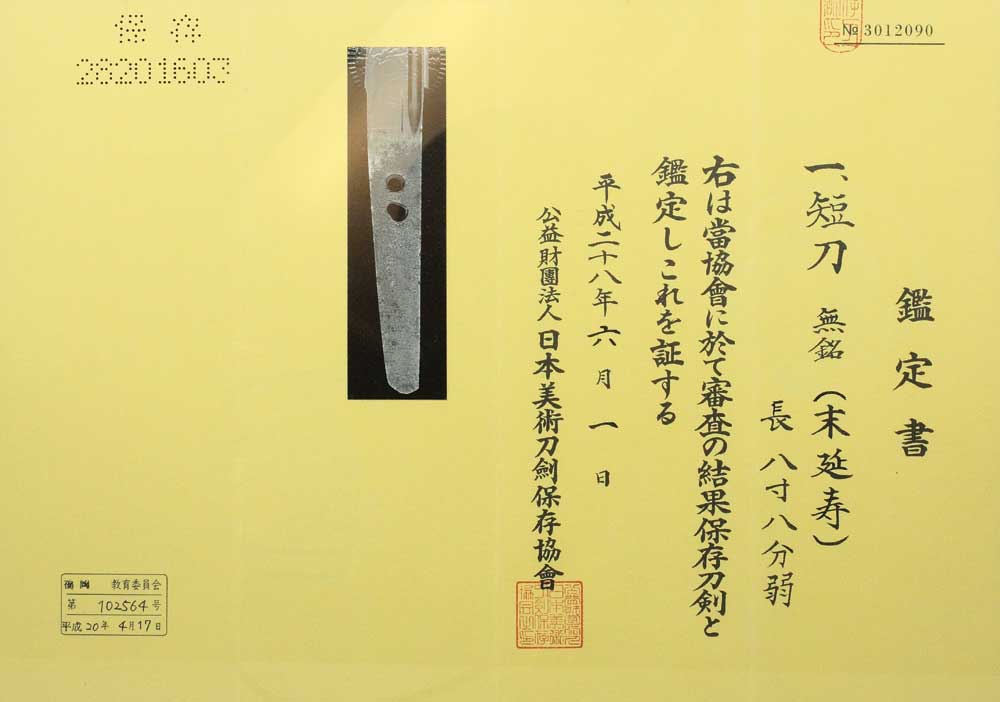 №3012090
鑑定書
一、短刀 無銘(末延寿)
長 八寸八分弱
右は當協會に於て審査の結果保存刀剣と
鑑定しこれを証する
平成二十八年六月一日
公益財團法人 日本美術刀劍保存協會
保存
28201603
福岡 教育委員会
第 102564 号
平成20年 4月17日